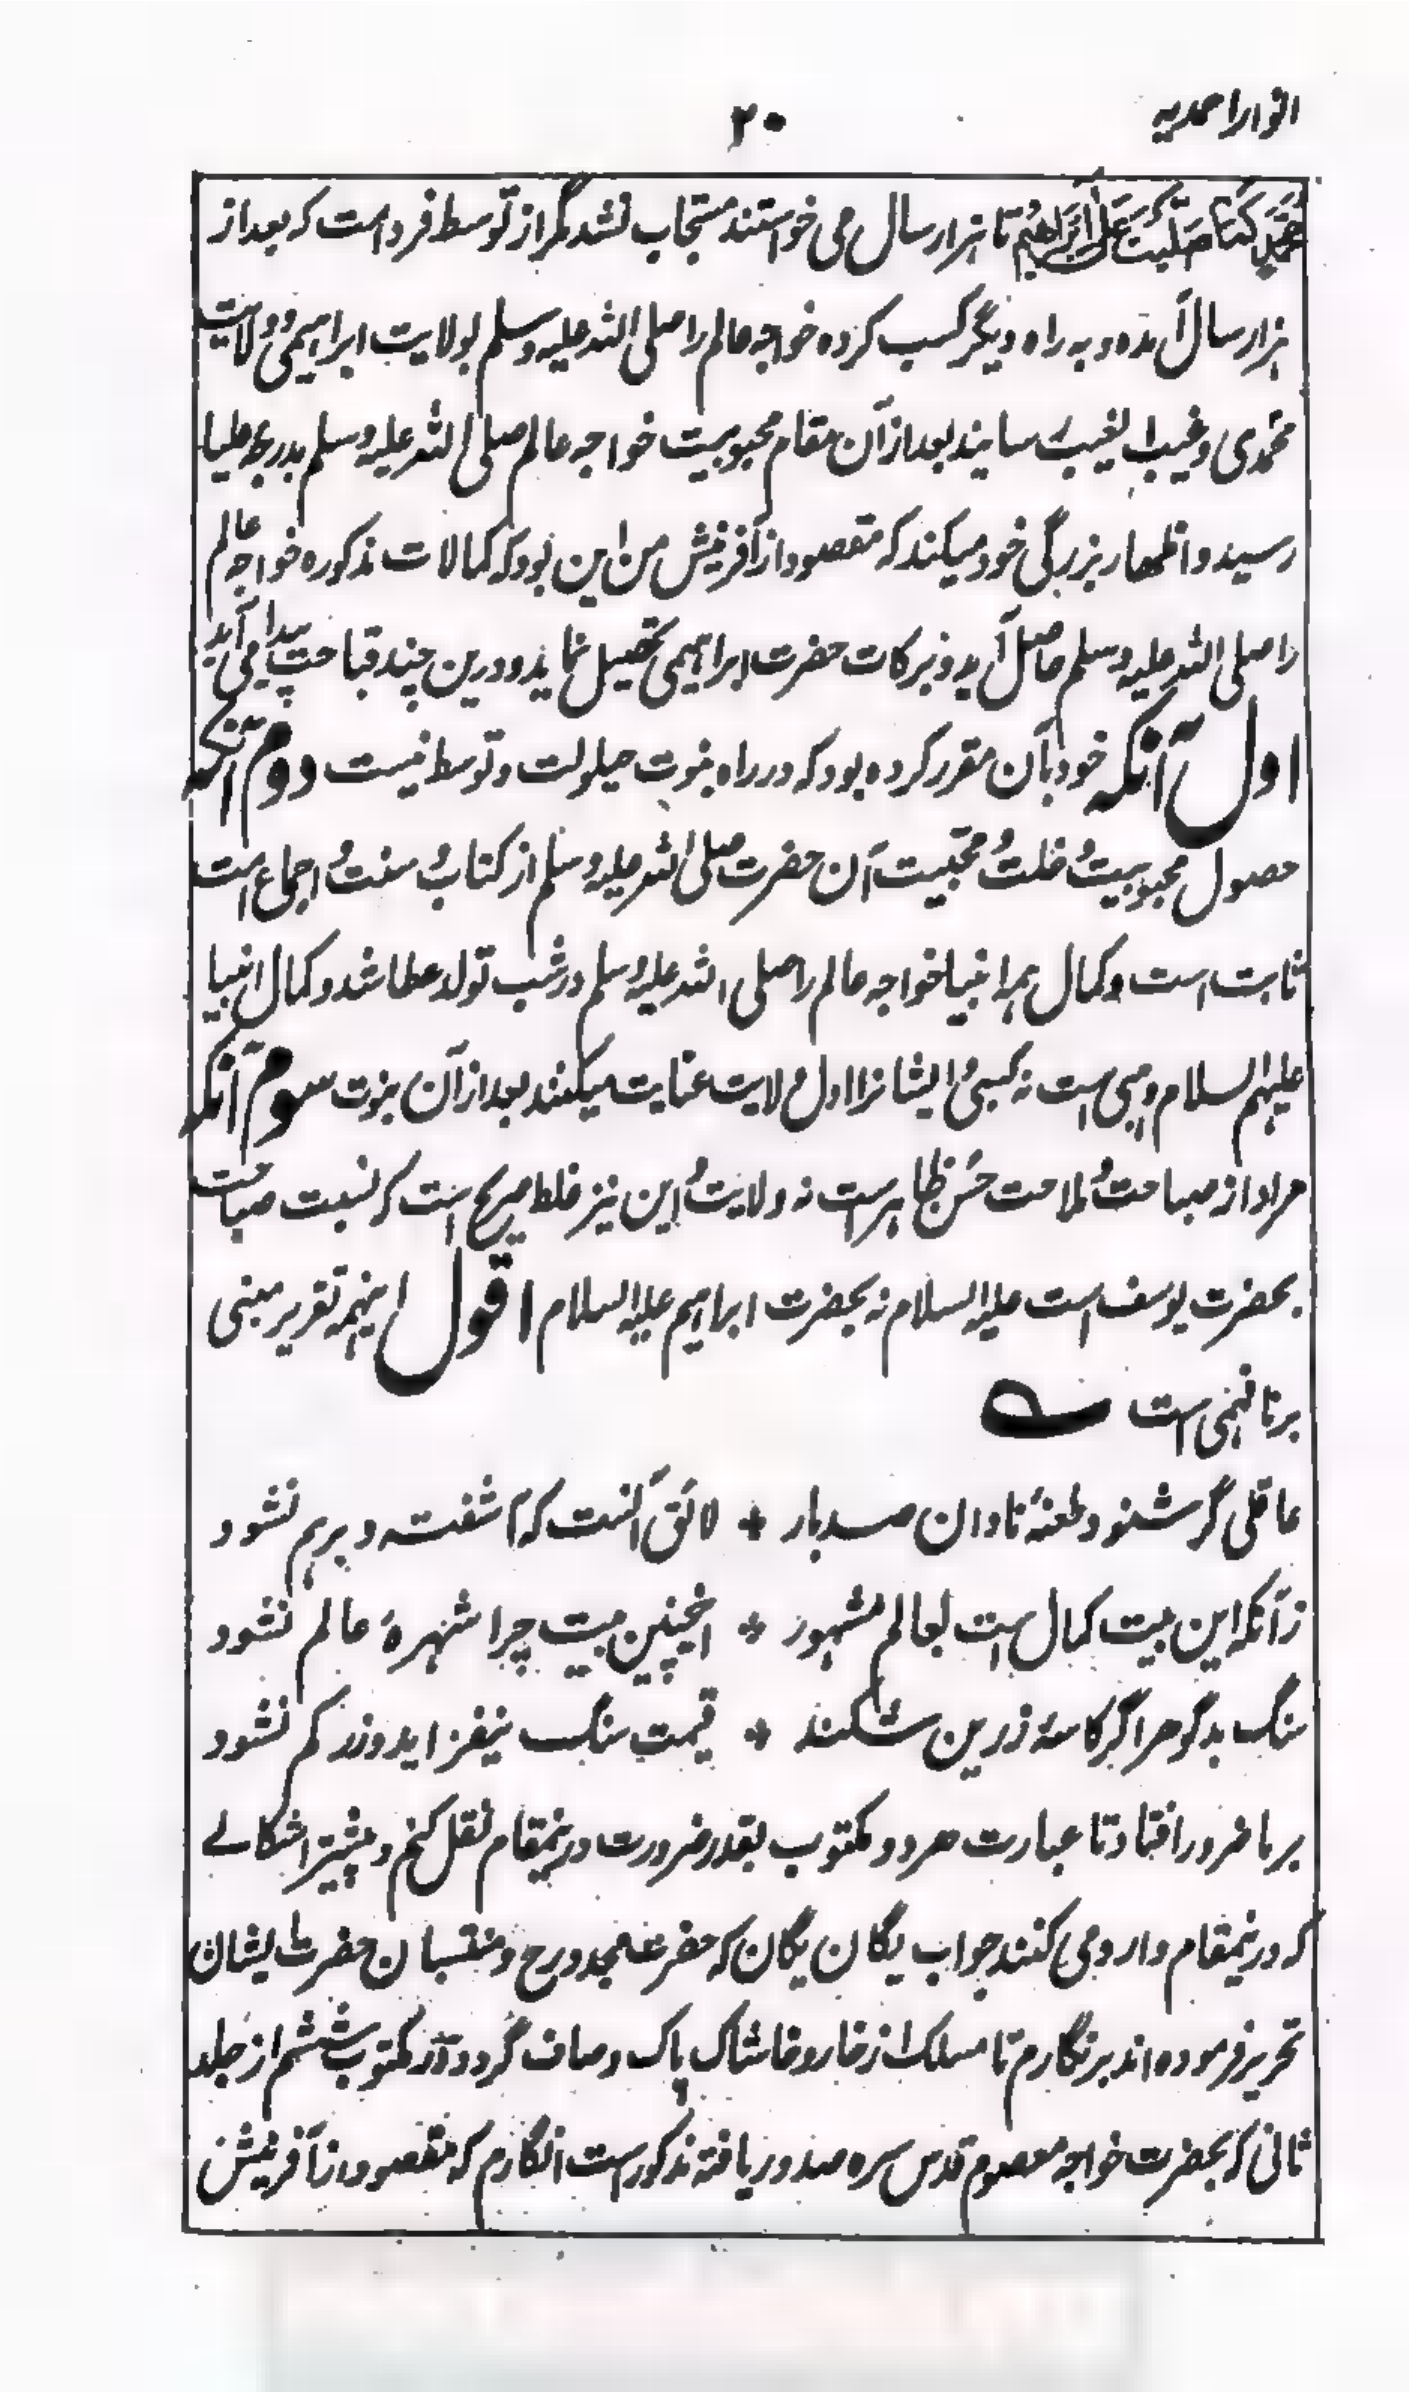 انوار احمدیہ
۲۰
مُحَمَّدٍ كَمَا صَلَّيْتَ عَلٰى اِبْرَاهِيْمَ تا ہزار سال می خواستند مستجاب نشد مگر از توسط فرد است کہ بعد از
ہزار سال آمدہ و بہ راہ دیگر کسب کردہ خواجہ عالم را صلی اللہ علیہ وسلم بولایت ابراہیمی و ولایت
محمدی و غیب الغیب رسانید بعد از آن مقام محبوبیت خواجہ عالم صلی اللہ علیہ وسلم بدرجہ علیا
رسید و اظہار بزرگی خود میکند کہ مقصود از آفرینش من این بود کہ کمالات مذکورہ خواجہ عالم
را صلی اللہ علیہ وسلم حاصل آید و برکات حضرت ابراہیمی تحصیل نماید و درین چند قباحت پیدا می آید
اول آنکہ خود بآن مقرر کردہ بود کہ در راہ نبوت حیلولت و توسط نیست دوم آنکہ
حصول محبوبیت و خلت و محبیت آن حضرت صلی اللہ علیہ وسلم از کتاب و سنت و اجماع است
ثابت است و کمال ہمہ انبیا خواجہ عالم را صلی اللہ علیہ وسلم در شب تولد عطا شد و کمال انبیا
علیہم السلام وہبی است نہ کسبی و ایشانرا اول ولایت عنایت میکنند بعد از آن نبوت سوم آنکہ
مراد از صباحت و ملاحت حسن ظاہر است نہ ولایت و این نیز غلط صریح است کہ نسبت صباحت
بحضرت یوسف است علیہ السلام نہ بحضرت ابراہیم علیہ السلام اقول اینہمہ تقریر مبنی
بر نافہمی است ؎
عاقلی گر شنود طعنۂ نادان صدبار ٭ لائق آنست کہ آشفتہ و برہم نشود
زآنکہ این بیت کمال است بعالم مشہور ٭ اینچنین بیت چرا شہرۂ عالم نشود
سنگ بدگوھر اگر کاسۂ زرین شکند ٭ قیمت سنگ نیفزاید و زر کم نشود
برما ضرور افتاد تا عبارت ھر دو مکتوب بقدر ضرورت درینمقام نقل کنم و پیشتر اشکالے
کہ درینمقام وارد می کنند جواب یگان یگان کہ حضرت مجدد رح و منتسبان حضرت ایشان
تحریر فرمودہ اند بر نگارم تا مسلک از خار و خاشاک پاک و صاف گردد و در مکتوب ششم از جلد
ثانی کہ بحضرت خواجہ معصوم قدس سرہ صدور یافتہ مذکور ست انگارم کہ مقصود از آفرینش